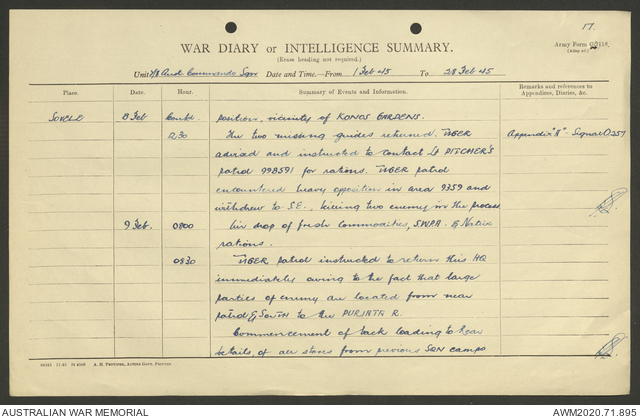 17.
WAR DIARY or INTELLIGENCE SUMMARY.
(Erase heading not required.)
Army Form C2118.
Unit 2/8 Aust Commando Sqn Date and Time.—From 1 Feb 45 To 28 Feb 45
Place. Date. Hour. Summary of Events and Information. Remarks and references to Appendices, Diaries, &c.
SOVELE 8 Feb Contd. position, vicinity of KONGS GARDENS.
1230 The two missing guides returned. TIGER Appendix "A" - Signal O257
advised and instructed to contact Lt PITCHER'S
patrol 998591 for rations. TIGER patrol
encountered heavy opposition in area 9359 and
withdrew to S.E., killing two enemy in the process
9 Feb. 0800 Air drop of fresh commodities, SWPA & Native
rations.
0830 TIGER patrol instructed to return this HQ
immediately owing to the fact that large
parties of enemy are located from near
patrol & South to the PURIATA R.
Commencement of back loading to Rear
details, of all stores from previous SQN camps
A. H. Pettifer, Acting Govt. Printer.
AUSTRALIAN WAR MEMORIAL
AWM2020.71.895